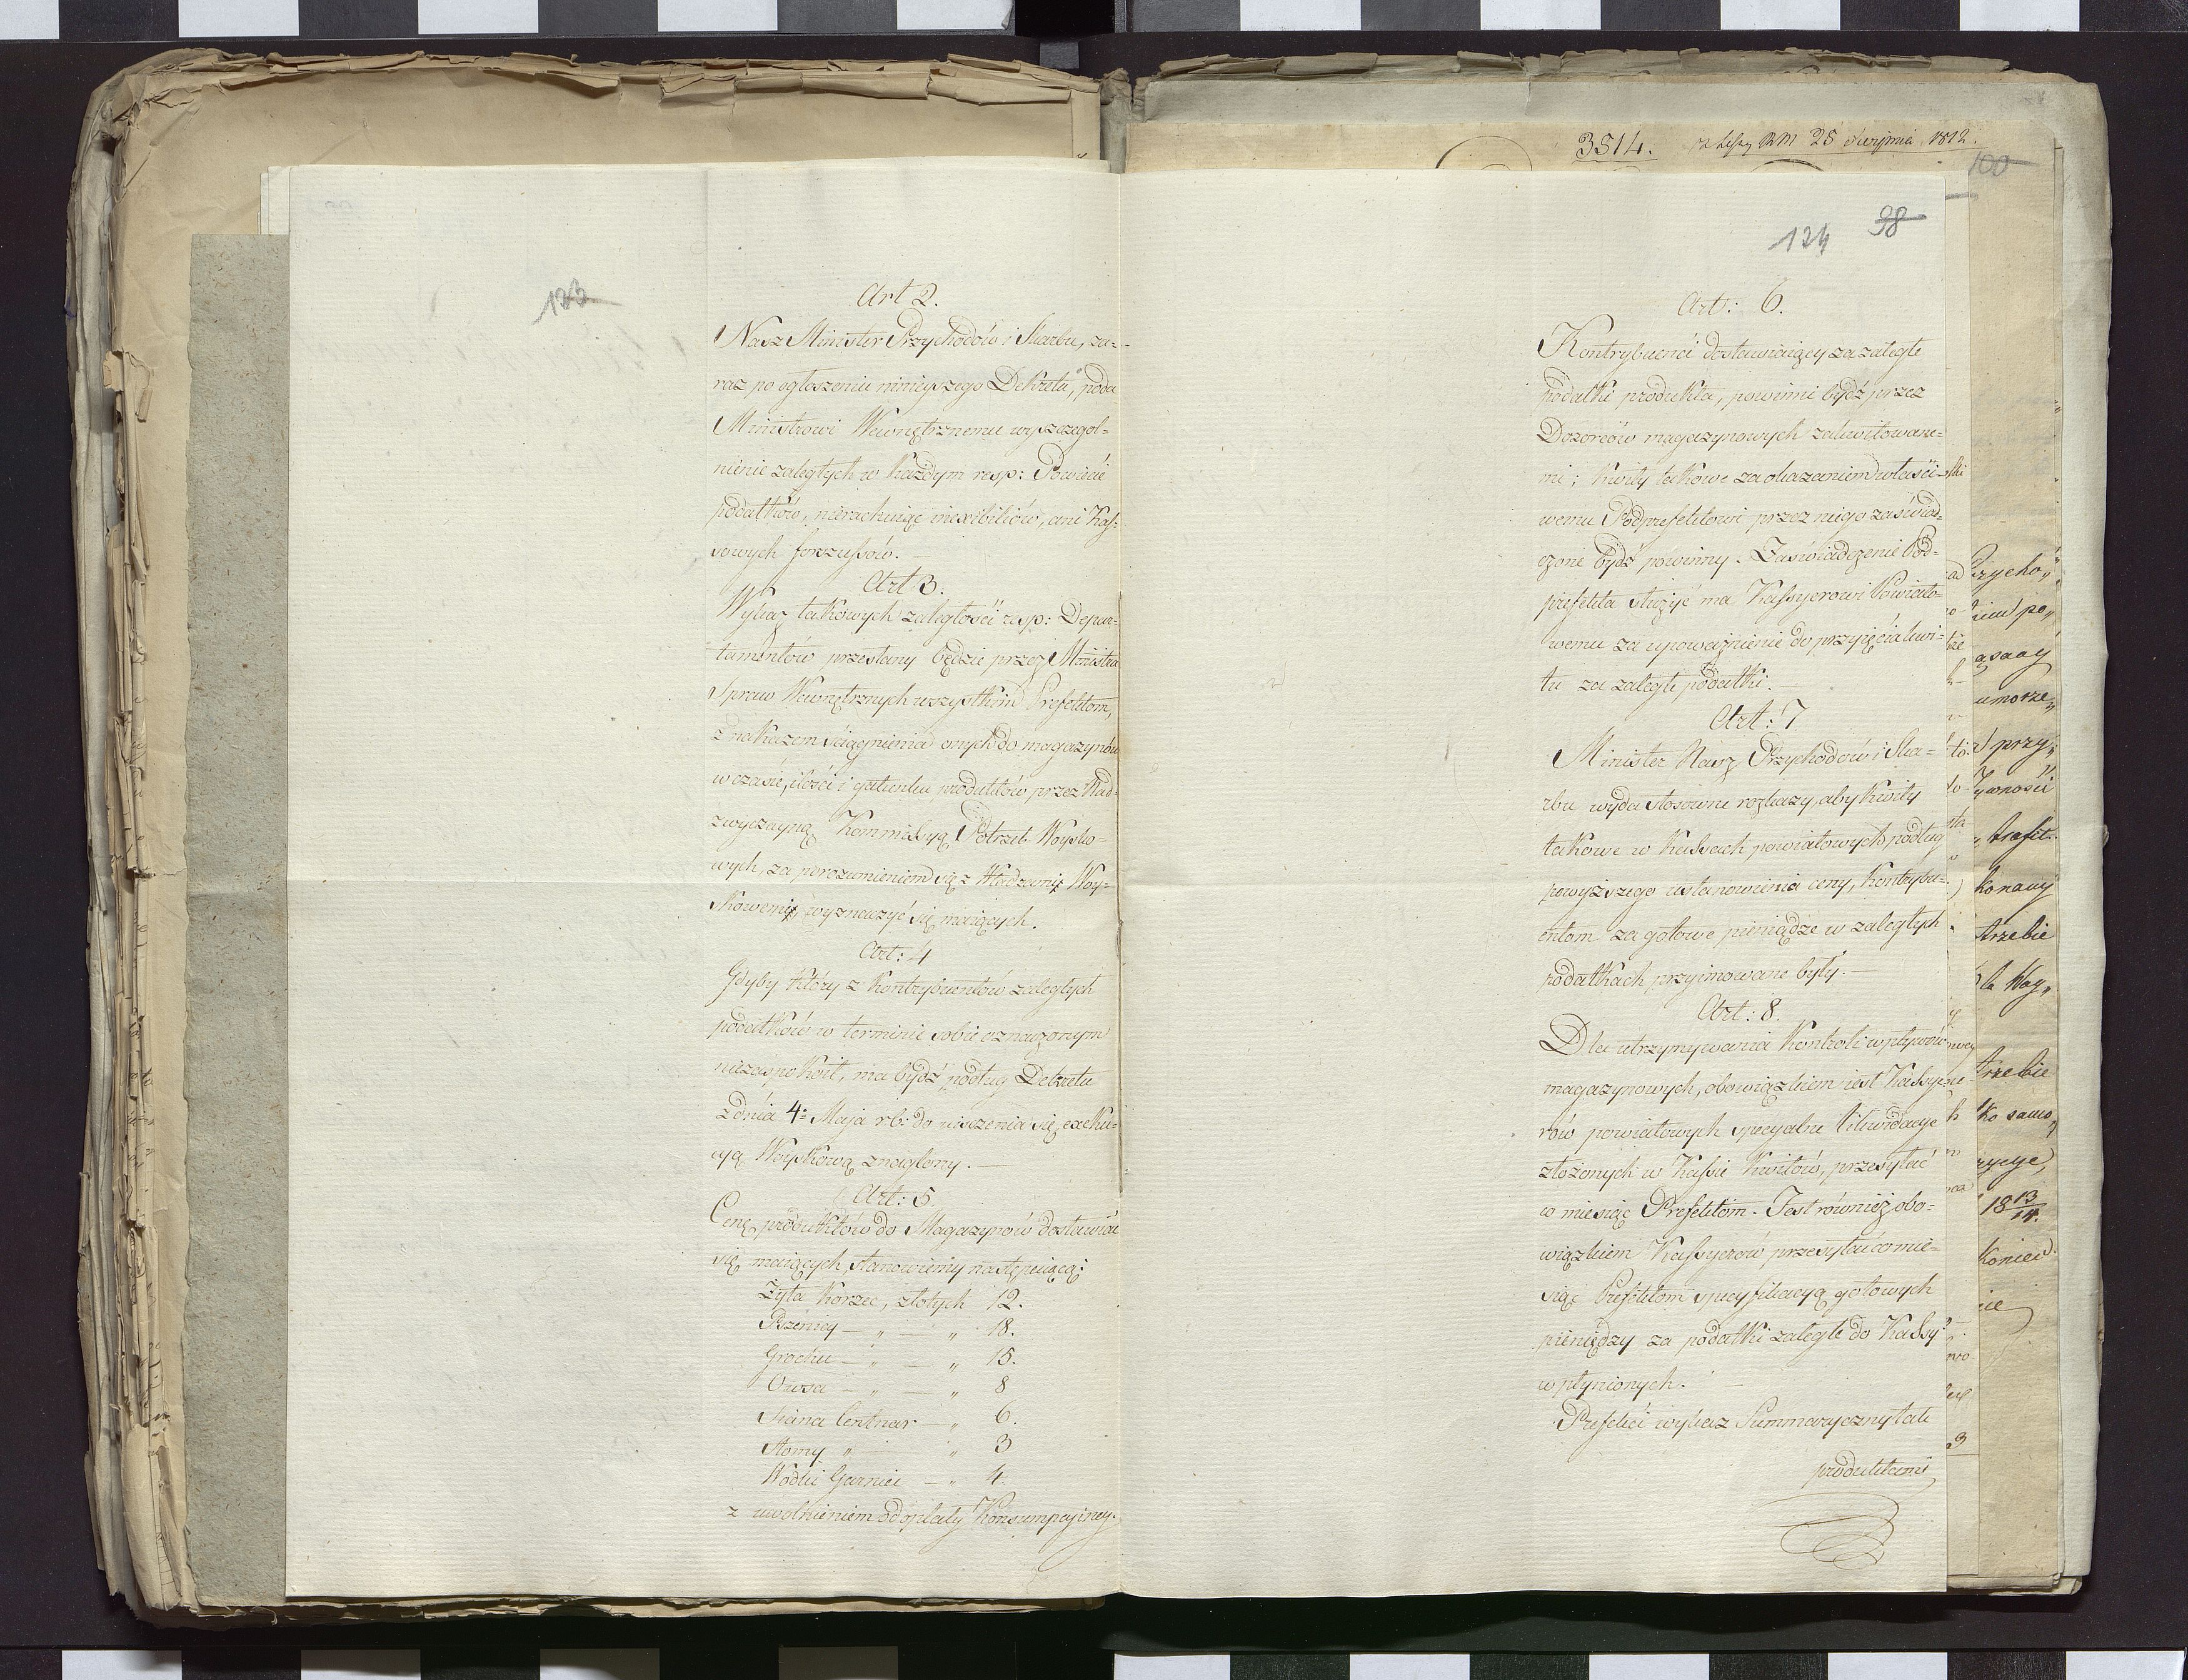 123
Art 2.
Nasz Minister Przychodów i Skarbu, za=
raz po ogłoszeniu ninieyszego Dekretu, poda
Ministrowi Wewnętrznemu wyszczegól=
nienie zaległych w każdym resp: Powiecie
podatków, nierachuiąc inexibiliów, ani Kas=
sowych forszussów.
Art 3.
Wykaz takowych zaległości resp: Depar=
tamentów przesłany będzie przez Ministra
Spraw Wewnętrznych wszystkim Prefektom,
z nakazem ściągnienia onych do magazynów
w czasie, ilości i gatunku produktów przez Nad=
zwyczayną Kommissyą Potrzeb Woysko=
wych, za porozumieniem się z Władzami Woy=
skowemi, wyznaczyć się maiących.
Art: 4
Gdyby który z Kontrybuentów zaległych
podatków w terminie sobie oznaczonym
niezaspokoił, ma bydź podług Dekretu
z dnia 4: Maja rb: do uiszczenia się exeku=
cyą Woyskową znaglony. —
Art: 5.
Cenę produktów do Magazynów dostawiać
się maiących, stanowiemy następuiącą:
Żyta Korzec, złotych 12.
Pszenicy — „ — „ 18.
Grochu — „ — „ 15.
Owsa — „ „ 8
Siana Centnar — „ 6.
Słomy „ — „ 3
Wódki Garniec — „ 4.
z uwolnieniem od opłaty Konsumpcyiney.
3514. 25 Sierpnia 1812.
100
98
124
Art: 6.
Kontrybuenci dostawiaiący za zaległe
podatki produkta, powinni bydź przez
Dozorców magazynowych zakwitowane=
mi; Kwity takowe za okazaniem właści=
wemu Podprefektowi przez niego zaświad=
czone bydź powinny. Zaświadczenie Pod=
prefekta służyć ma Kassyerowi Powiato=
wemu za upoważnienie do przyięcia kwi=
tu za zaległe podatki. —
Art: 7
Minister Nasz Przychodów i Ska=
rbu wyda stosowne rozkazy, aby Kwity
takowe w Kassach powiatowych podług
powyższego ustanowienia ceny, Kontrybu=
entom za gotowe pieniądze w zaległych
podatkach przyimowane były. —
Art: 8.
Dla utrzymywania Kontroli wpływów
magazynowych, obowiązkiem iest Kassye=
rów powiatowych specyalne likwidacye
złożonych w Kassie Kwitów, przesyłać
co miesiąc Prefektom. Jest również obo=
wiązkiem Kassyerów przesyłać co mie=
siąc Prefektom specyfikacyą gotowych
pieniędzy za podatki zaległe do Kassy
wpłynionych. —
Prefekci wykaz Summaryczny tak
produktami
Przycho„
umorze„
przy„
konany
trzebie
la Woy„
trzebie
ko samo„
18 13/14.
Koniec